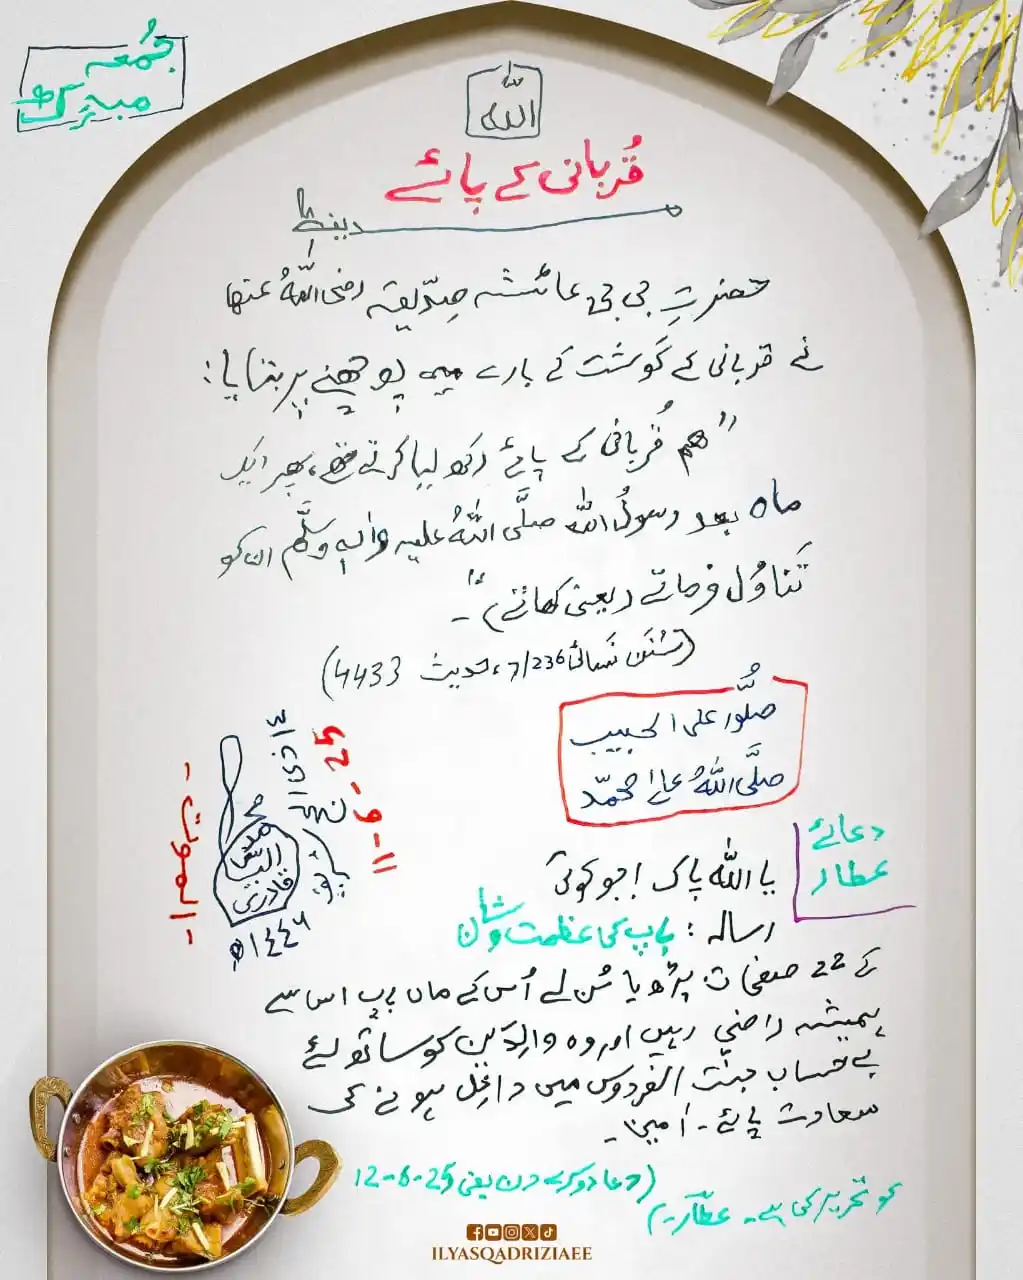 جُمُعہ
مبارک
اللہ
قُربانی کے پائے
حضرتِ بی بی عائشہ صِدّیقہ رضی اللہُ عنہا
نے قربانی کے گوشت کے بارے میں پوچھنے پر بتایا:
"ہم قُربانی کے پائے رکھ لیا کرتے تھے، پھر ایک
ماہ بعد رسولُ اللہ صلَّی اللہُ علیہ واٰلہٖ وسلَّم ان کو
تَناوُل فرماتے (یعنی کھاتے)"۔
(سُنَن نَسائی 7/236، حدیث 4433)
صلُّوا علی الحبیب
صلَّی اللہُ علیٰ محمّد
11-6-25
محمد الیاس قادری
١٤٤٦ھ
- الموت -
دعائے
عطار
یا اللہ پاک! جو کوئی
رسالہ: باپ کی عظمت و شان
کے 22 صفحات پڑھ یا سُن لے اُس کے ماں باپ اس سے
ہمیشہ راضی رہیں اور وہ والِدَین کو ساتھ لئے
بے حساب جنّت الفردوس میں داخِل ہونے کی
سعادت پائے۔ اٰمین۔
(دعا دوسرے دن یعنی 25-6-12
کو تحریر کی ہے۔ عطّار۔)
ILYASQADRIZIAEE